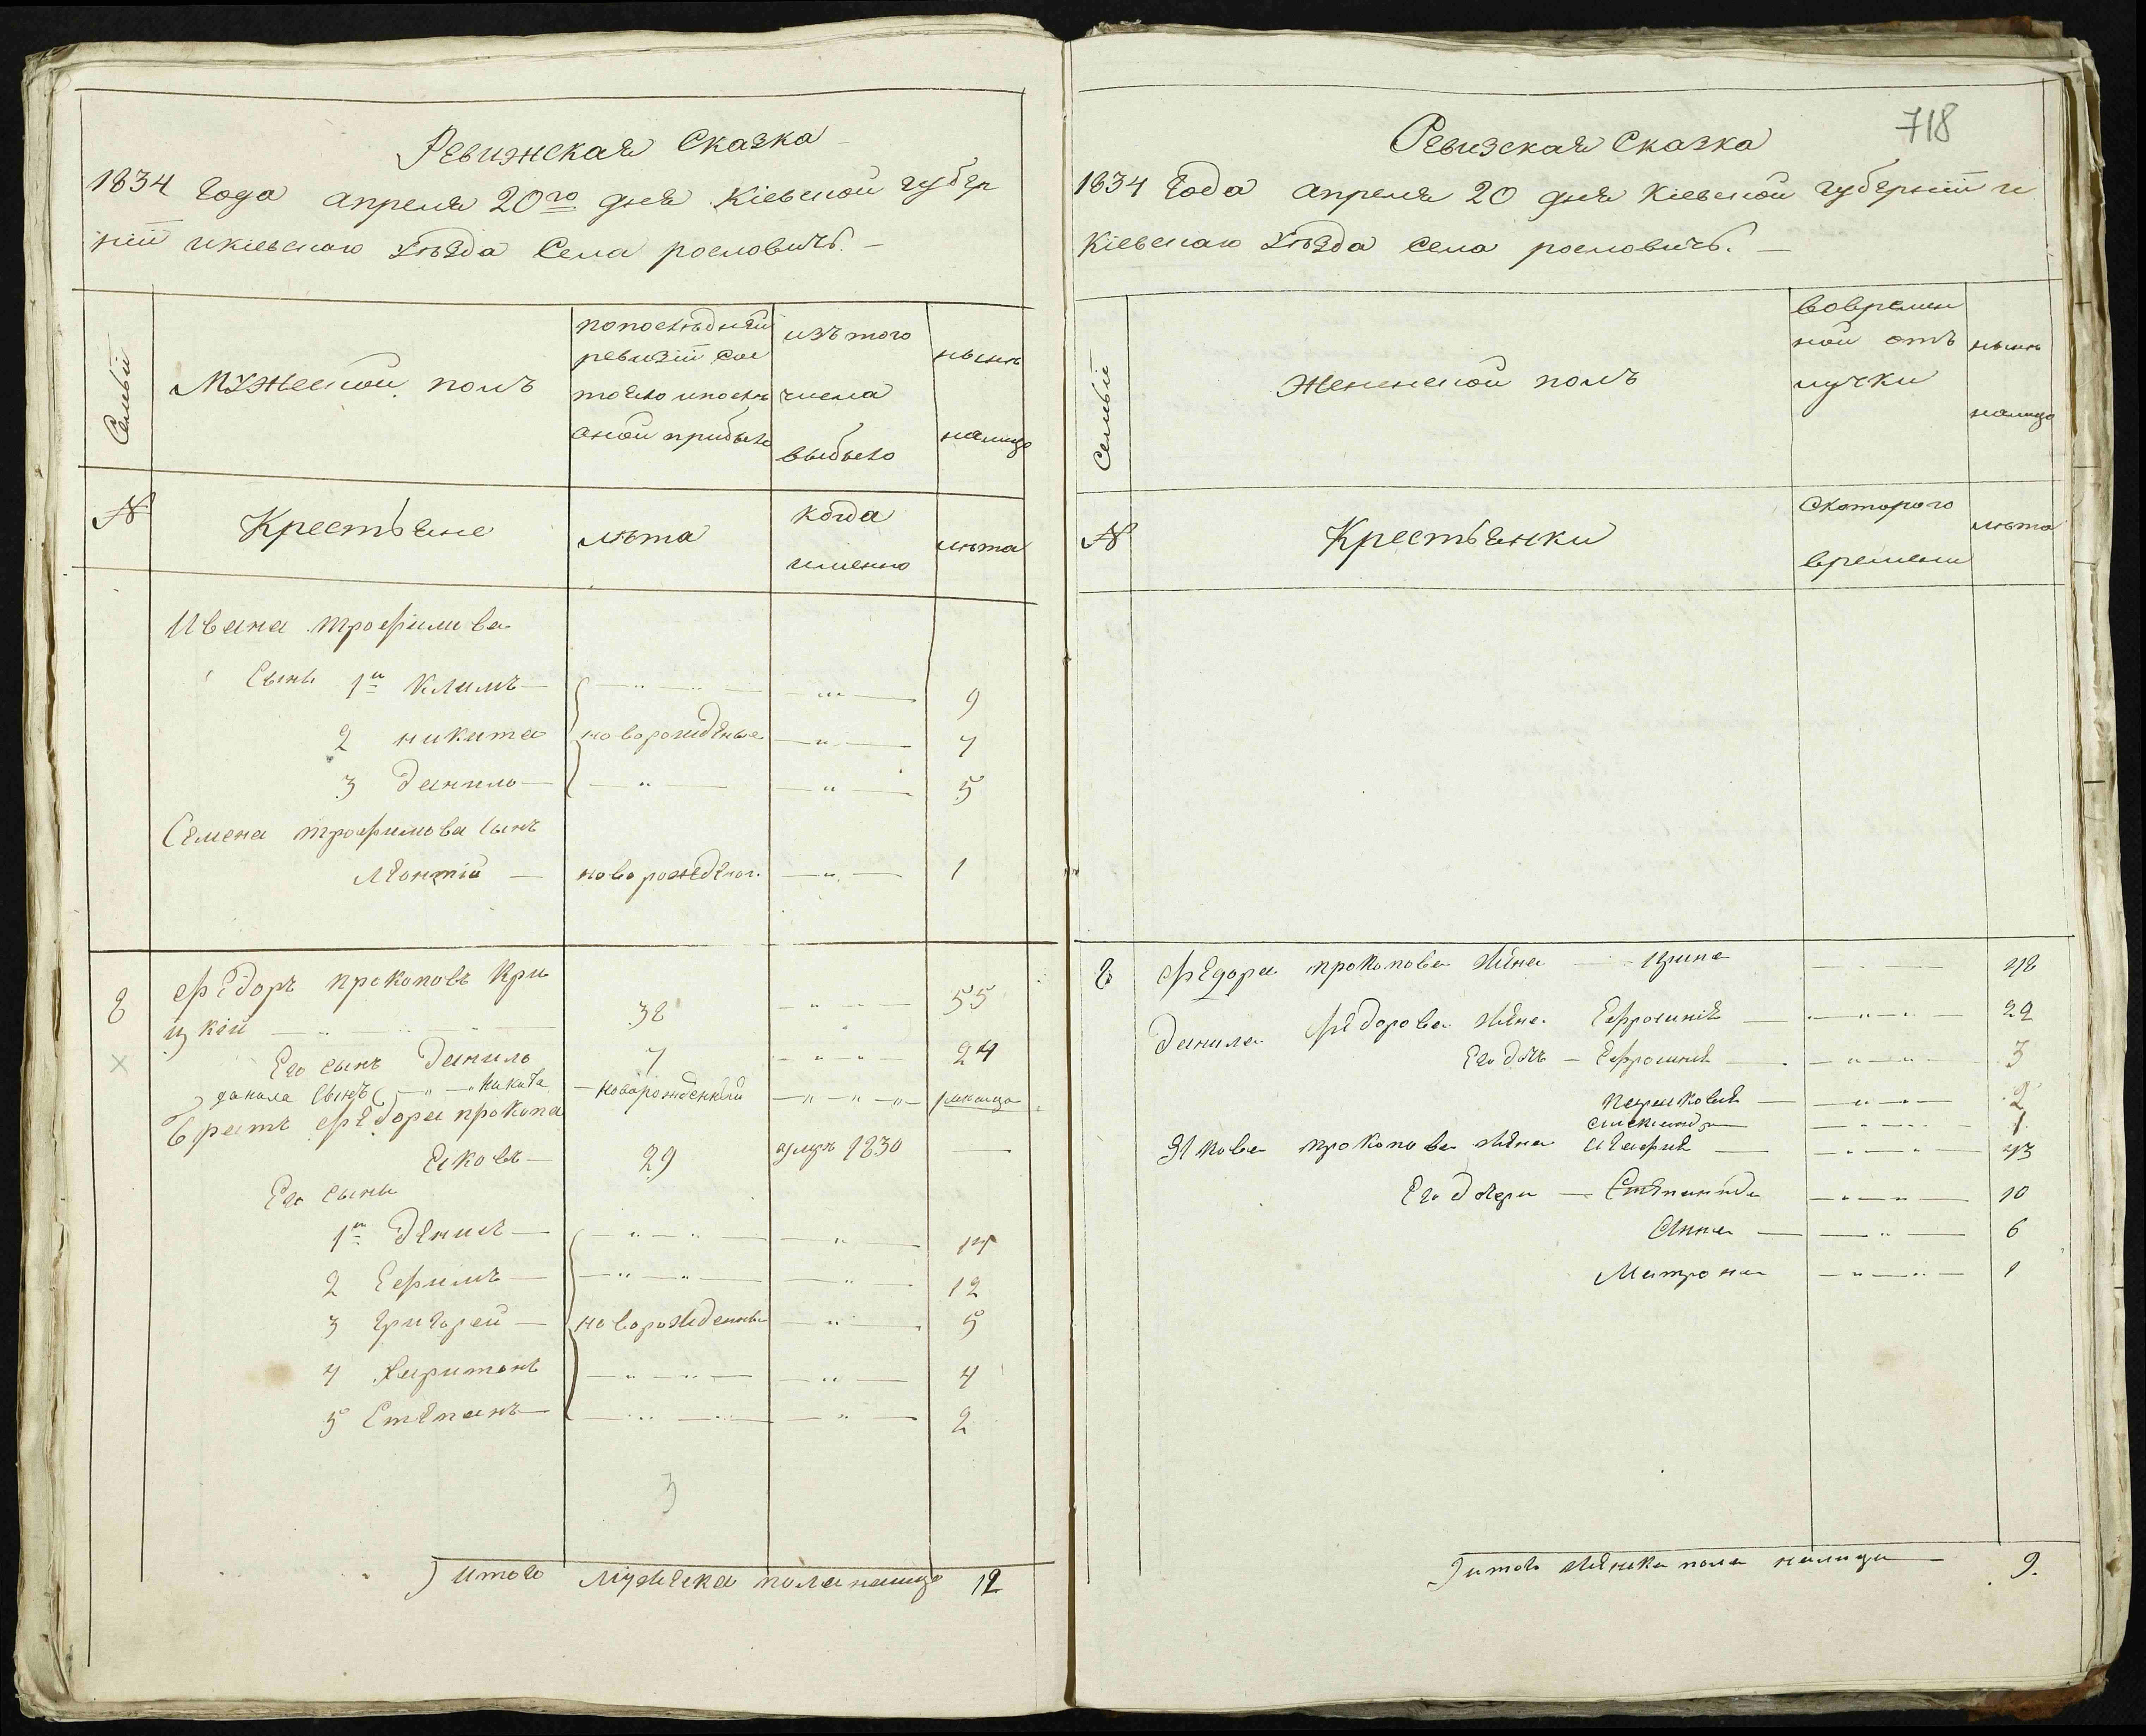 Ревижская Сказка
1834 Года апреля 20го дня Кіевской губер
ніи икіевскаго Уѣзда Села рословичъ. —
Семьи
Мужеской полъ
попослѣдней
ревизіи сос
тояло ипослѣ
оной прибыло
изъ того
числа
выбыло
нынѣ
налицо
№
Крестьяне
лѣта
когда
имянно
лѣта
Ивана трофимова
Сыны 1й Климъ — 9
2 никита новорожденые 7
3 данило — 5
Семена трофимова сынъ
Леонтій — новорожденой 1
8 Федоръ прокоповъ Кри
цкій 38 55
Его сынъ Данило 7 24
данила Сынъ Никита новорожденный
Братъ Федора прокопа
Яковъ — 29 умре 1830 —
Его сыны
1й Денисъ — 14
2 Ефимъ — 12
3 Григорей — новорожденые 5
4 Харитонъ 4
5 Степанъ — 2
3
Итого мужеска пола налицо 12
718
Ревизская Сказка
1834 Года апреля 20 дня Кіевской губерніи и
Кіевскаго Уѣзда Села рословичъ. —
Семьи
Женнской полъ
вовремен
ной отъ
лучки
нынѣ
налицо
№
Крестьянки
Скоторого
времени
лѣта
8 Федора прокопова жена — Ирина 48
Данила Федорова жена Ефросинія — 22
Его дочь — Ефросинія — 3
2
1
Якова прокопова жена — 43
Его дочери — Степанида 10
Анна — 6
Матрона 1
Итого женска пола налицо — 9.